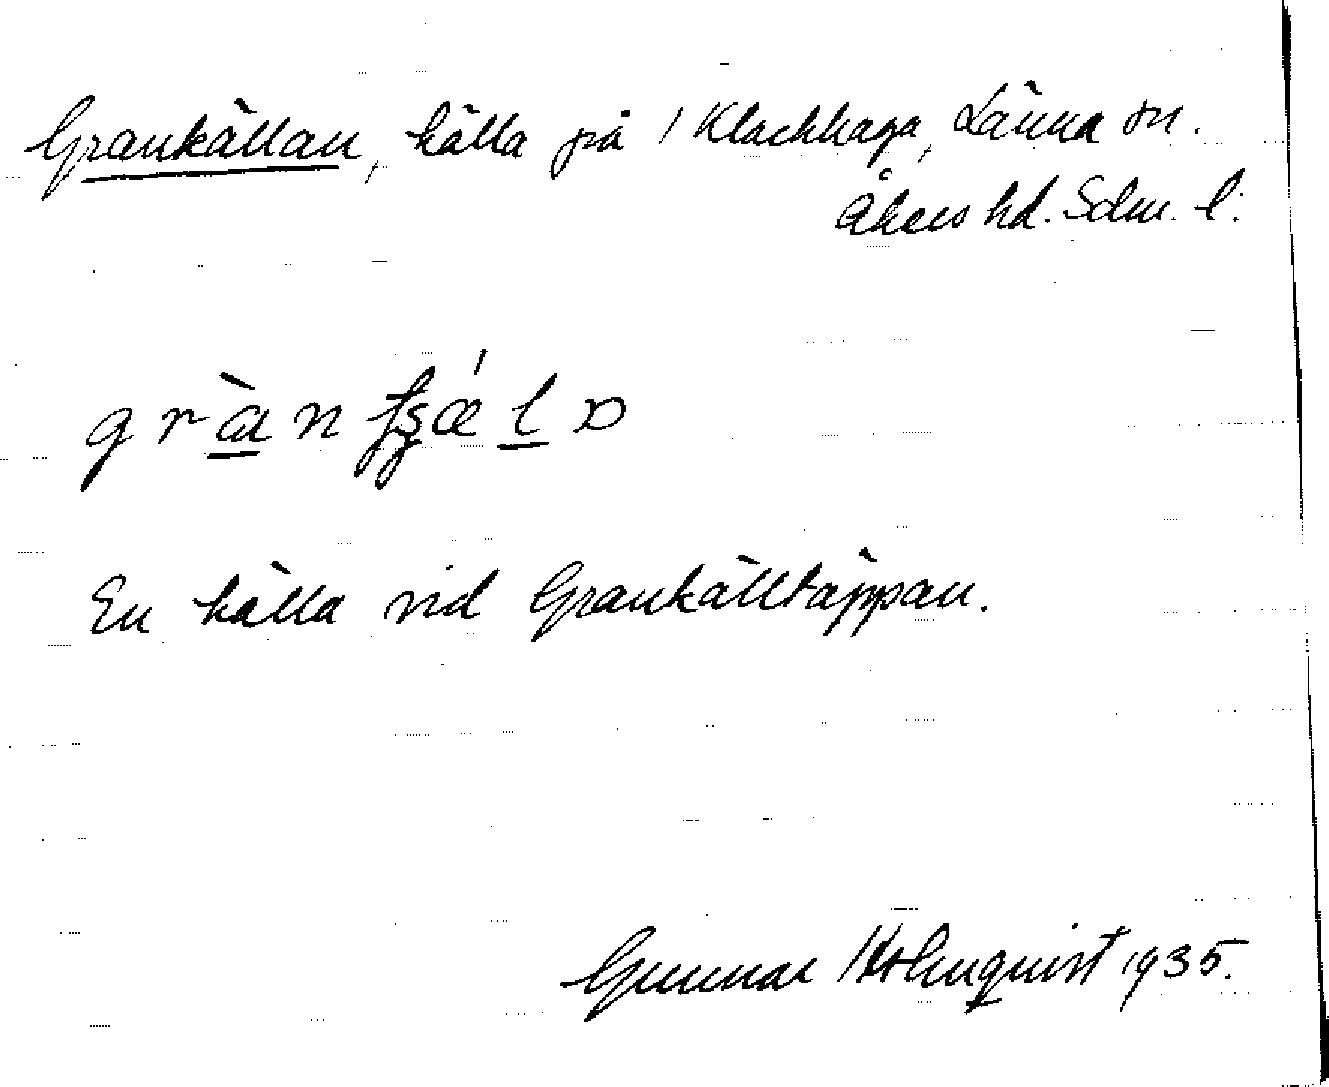 Grankällan, källa på 1 Klackhaga, Länna sn.
Åkers hd. Sdm. l.
gràn fʂǽlɒ
En källa vid Grankälltäppan.
Gunnar Holmquist 1935.